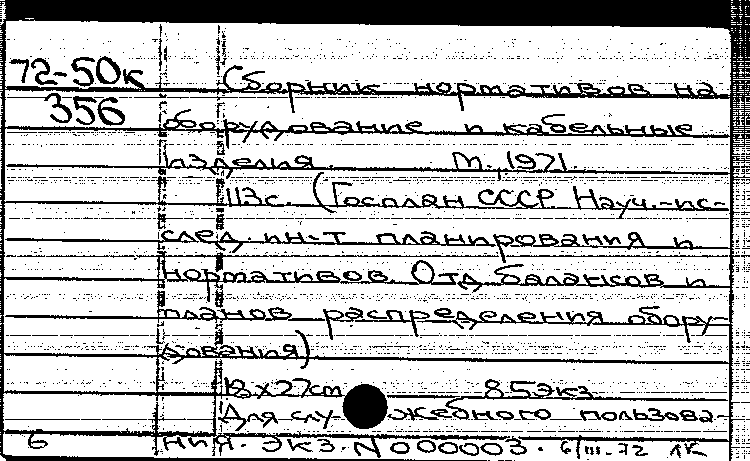 72-50к Сборник нормативов на
356 оборудование и кабельные
изделия. М., 1971.
113с. (Госплан СССР Науч.-ис-
след. ин-т планирования и
нормативов. Отд. балансов и
планов распределения обору-
дования)
18x27cm 85экз.
Для служебного пользова-
6 ния. Экз. N 000003. 6/III-72 ЛК